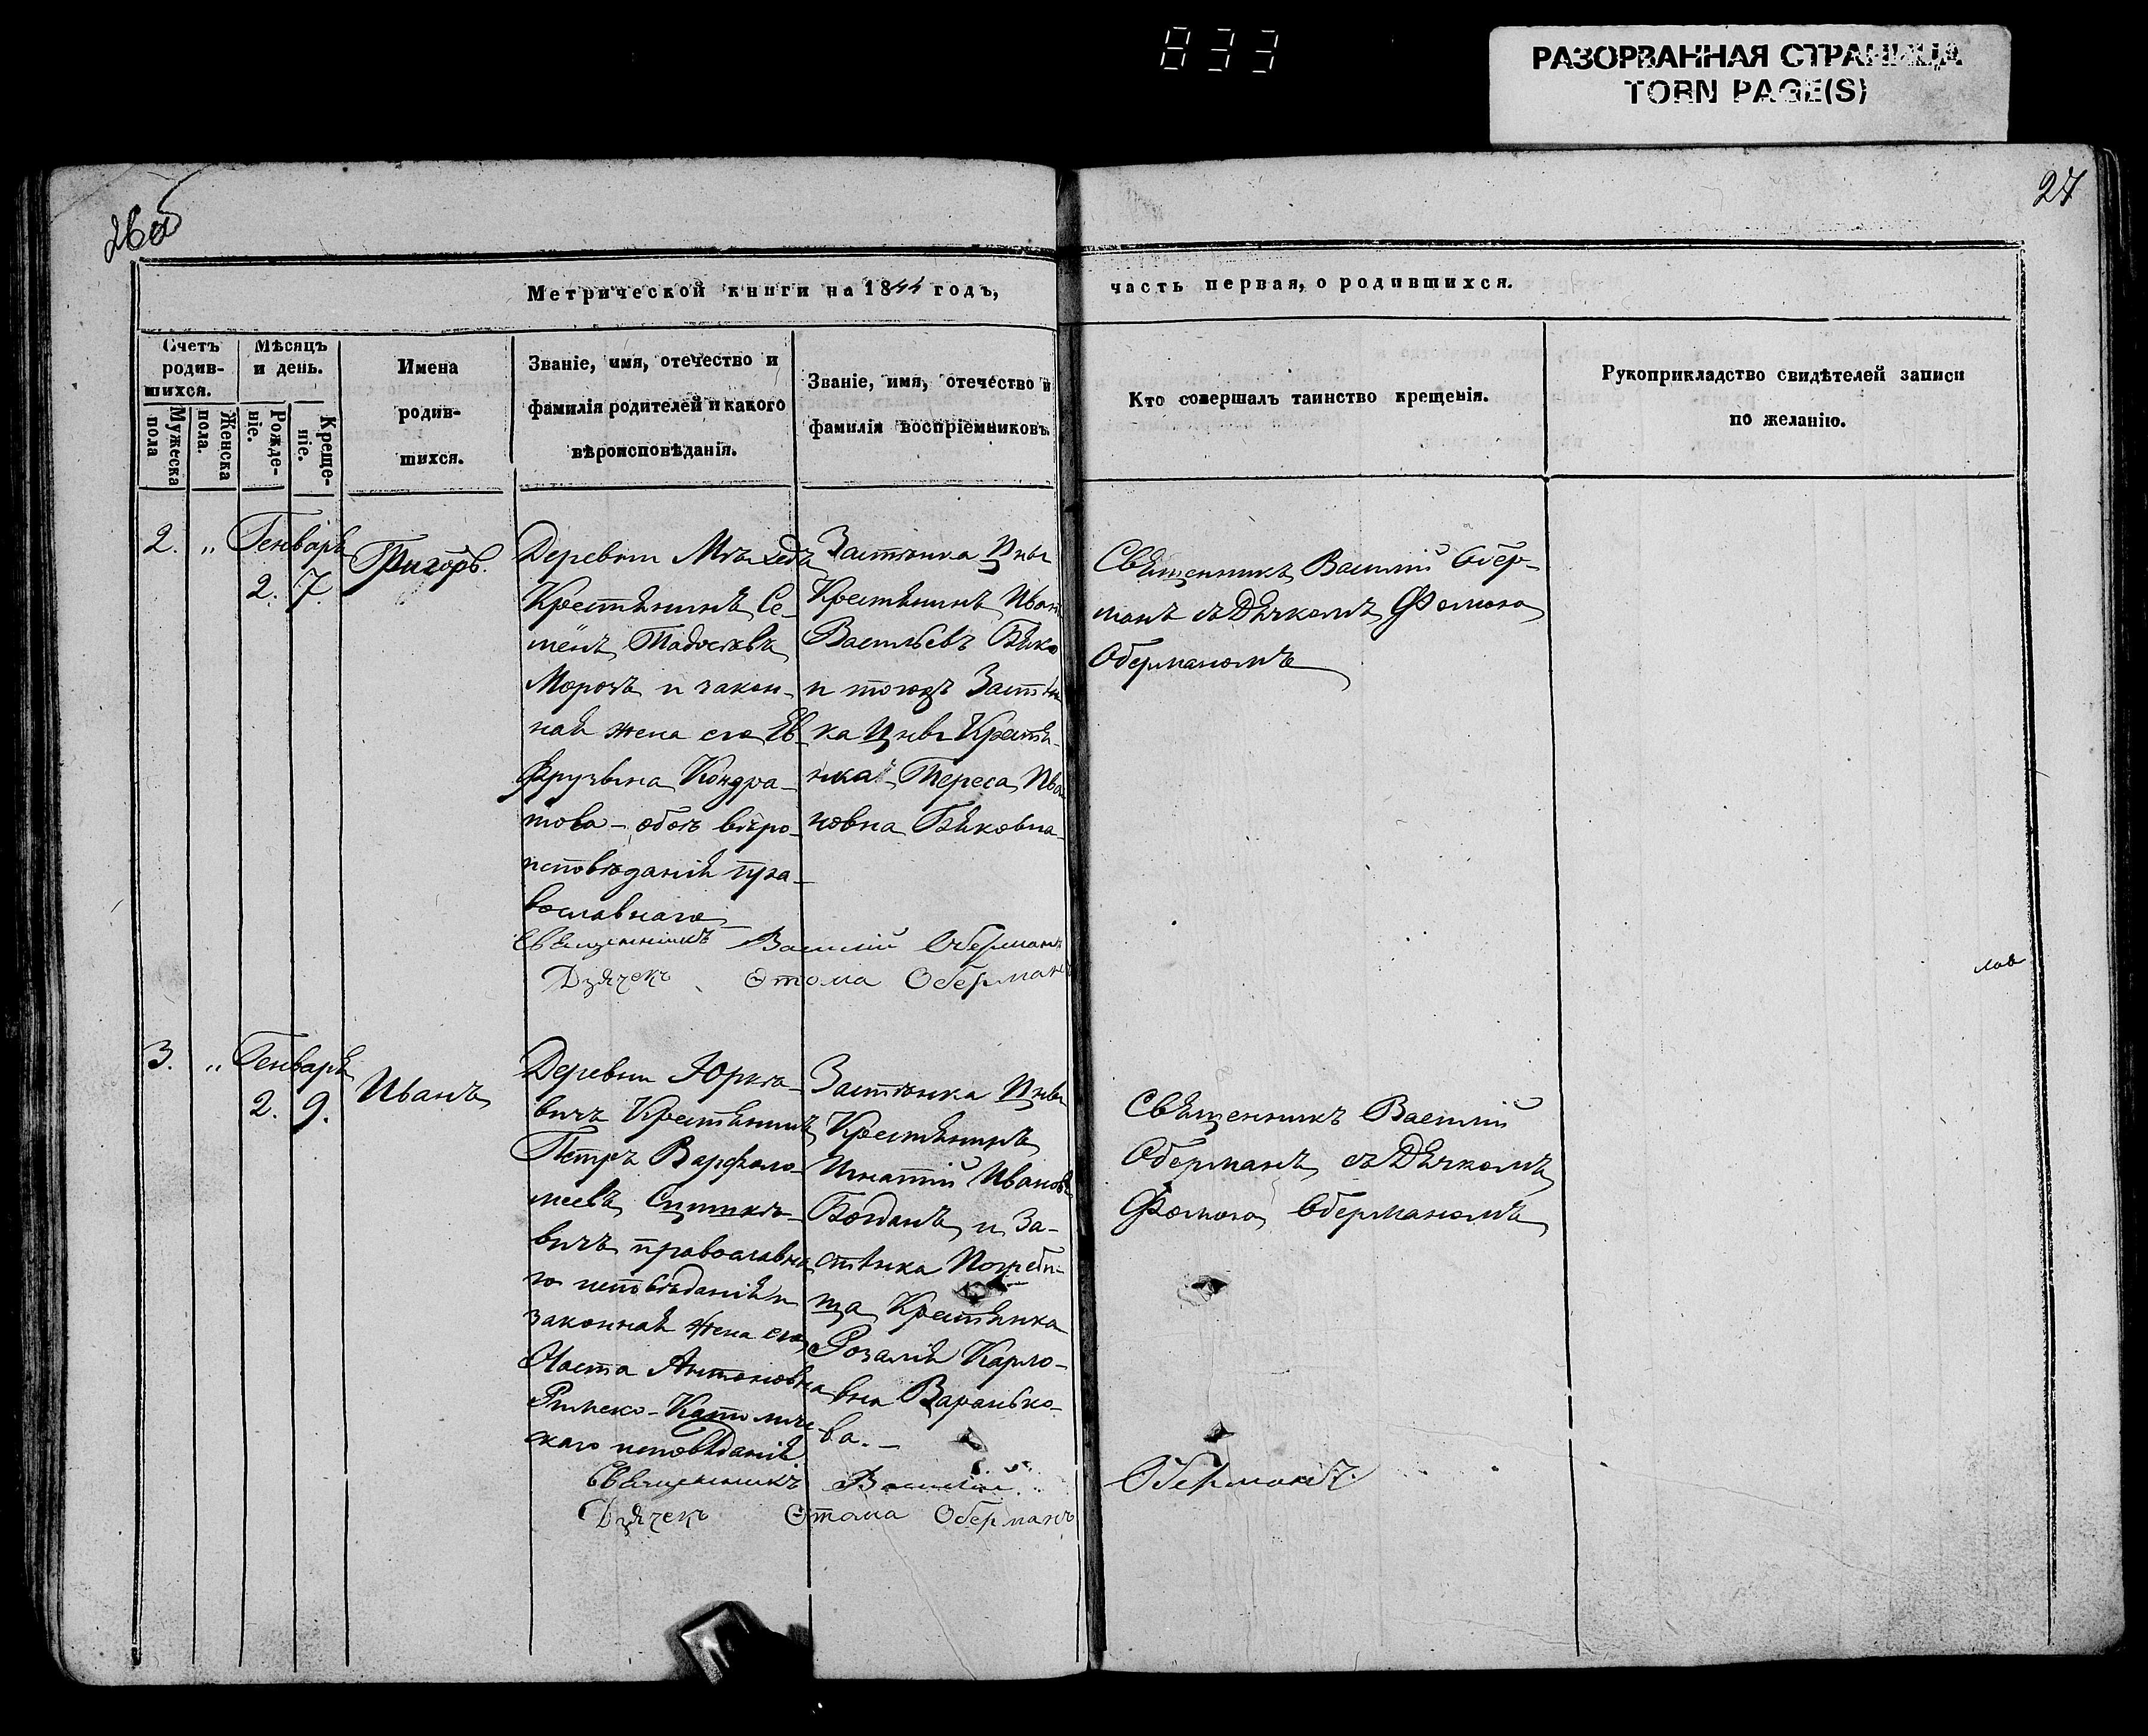 833
РАЗОРВАННАЯ СТРАНИЦА
TORN PAGE(S)
26об
27
Метрической книги на 1844 годъ,
часть первая, о родившихся.
Счетъ родив-
шихся.
Мужеска пола
Женска пола.
Мѣсяцъ и день.
Рожде-
ніе.
Креще-
ніе.
Имена
родив-
шихся.
Званіе, имя, отечество и
фамилія родителей и какого
вѣроисповѣданія.
Званіе, имя, отечество и
фамилія воспріемниковъ.
Кто совершалъ таинство крещенія.
Рукоприкладство свидѣтелей записи
по желанію.
2. „ Генваря
2. 7.
Григорій.
Деревни
Крестянинъ Се-
менъ
Морозъ и закон-
ная жена его Ев-
фрузына Кондра-
това – обоя вѣро-
исповѣданія пра-
вославнаго
Застѣнка Цны
Крестянинъ Иванъ
Васильевъ Бяко
и тогожъ Застѣн
ка Цны Крестя-
нка Тереса Ива
новна Бяковна
Священникъ Василій Обер-
манъ съ Дячкомъ Фомою
Оберманомъ
Священникъ Василій Оберманъ
Дзячекъ Ѳтома Оберманъ
лов
3. „ Генваря
2. 9.
Иванъ
Деревни Юрке-
вичъ Крестянинъ
Петръ Варфоло-
меевъ
вичъ православна
го исповѣданія и
законная жена его
Наста Антоновна
Римско-Католиче
скаго исповѣданія
Застѣнка Цны
Крестянинъ
Игнатій Ивановъ
Богданъ и За-
стѣнка Погреби-
ща Крестянка
Розалія Карло-
вна Варанько-
ва. –
Священникъ Василій
Оберманъ съ Дячкомъ
Фомою Оберманомъ
Священникъ Василій Оберманъ.
Дзячекъ Ѳтома Оберманъ